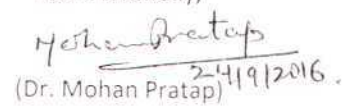 Mohan Pratap
24/9/2016.
(Dr. Mohan Pratap)